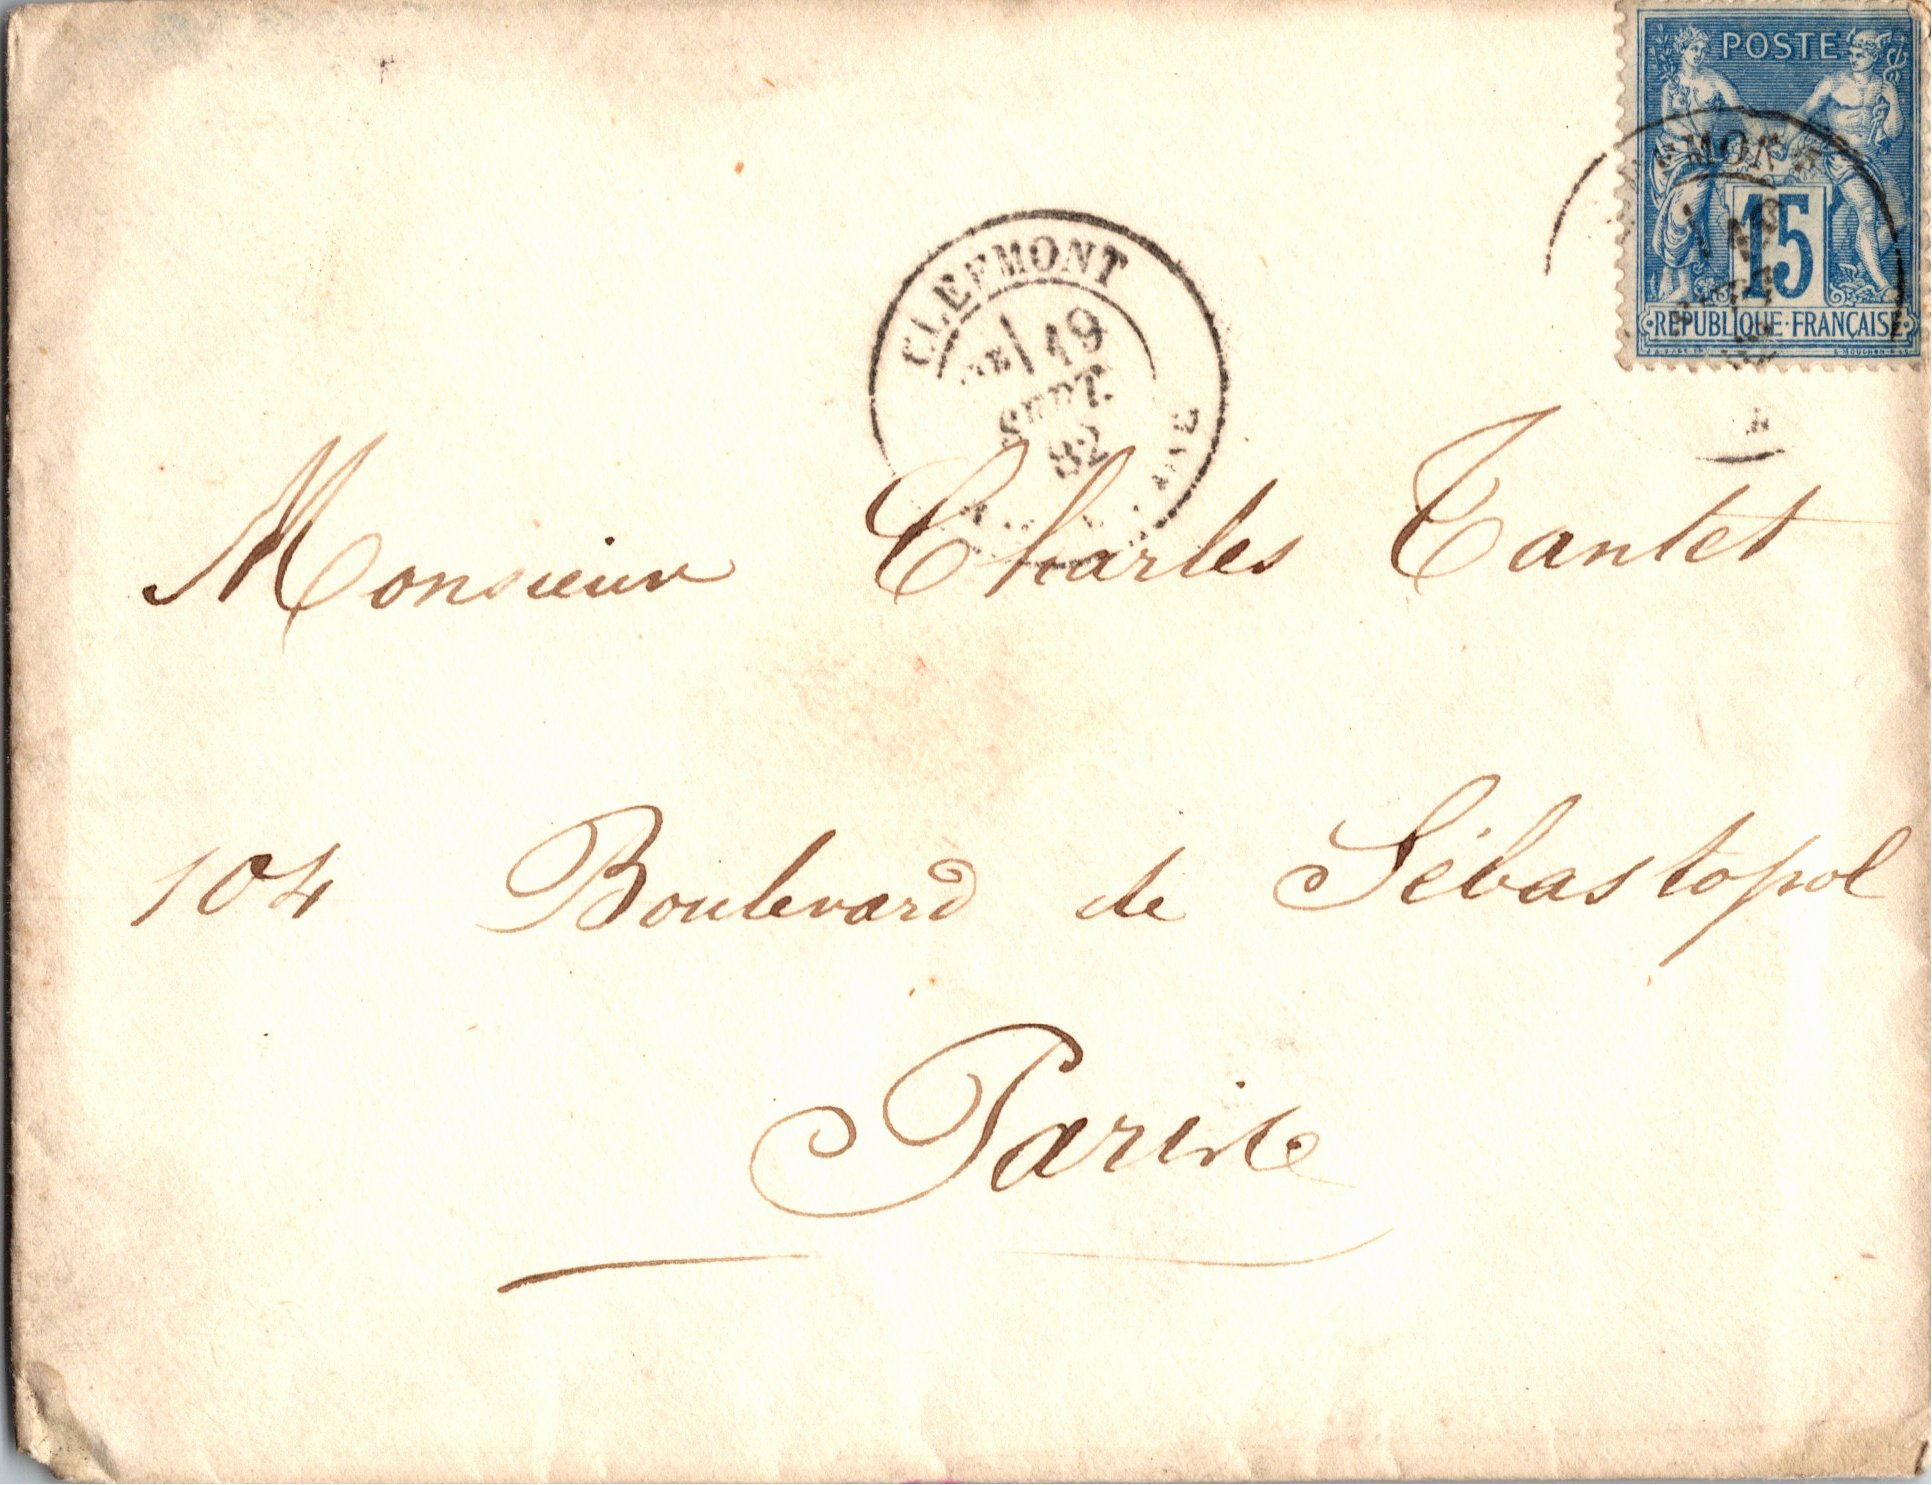 POSTE
15
REPUBLIQUE FRANÇAISE
CLEFMONT
19
SEPT.
82
Monsieur Charles Tantet
104 Boulevard de Sébastopol
Paris